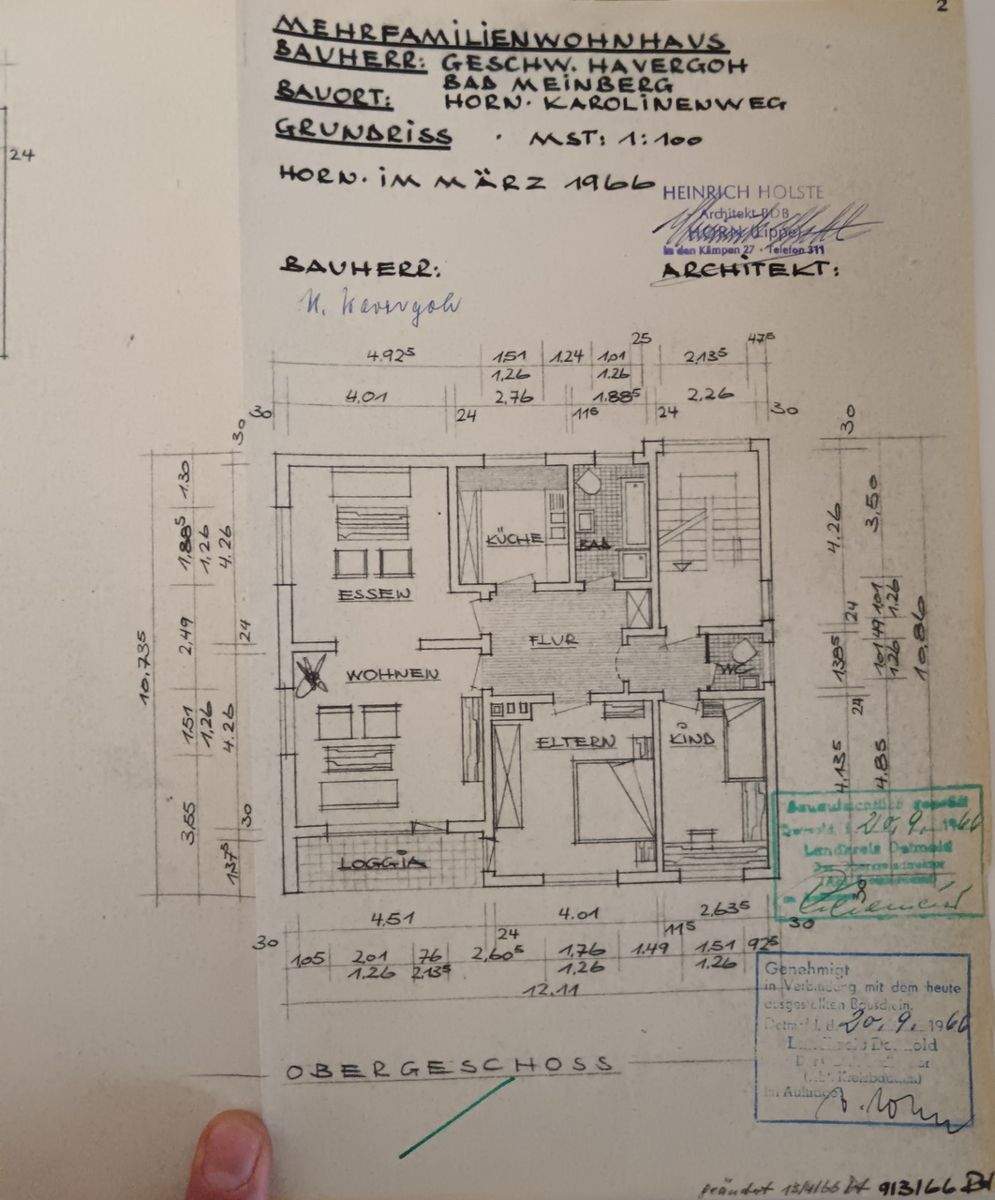 2
MEHRFAMILIENWOHNHAUS
BAUHERR: GESCHW. HAVERGOH
BAD MEINBERG
BAUORT: HORN. KAROLINENWEG
GRUNDRISS . MST: 1:100
HORN. IM MÄRZ 1966
HEINRICH HOLSTE
Architekt BDB
HORN (Lippe)
In den Kämpen 27 · Telefon 311
BAUHERR:
ARCHITEKT:
H. Havergoh
24
4.92⁵ 1.51 1.24 1.01 25 2.13⁵ 47⁵
1.26 1.26
30 4.01 24 2.76 11⁵ 1.88⁵ 24 2.26 30
10.73⁵
1.30 1.88⁵ 2.49 1.51 3.55
1.26 1.26
30 4.26 24 4.26 30 1.37⁵
KÜCHE
BAD
ESSEN
FLUR
WOHNEN
WC
ELTERN
KIND
LOGGIA
30 4.26 24 1.38⁵ 24 4.13⁵ 30
3.50 1.01 49 1.01 4.85
1.26 1.26
10.86
4.51 24 4.01 11⁵ 2.63⁵ 30
30 1.05 2.01 76 2.60⁵ 1.76 1.49 1.51 92⁵
1.26 2.13⁵ 1.26 1.26
12.11
20. 9. 1966
Landkreis Detmold
OBERGESCHOSS
Genehmigt
in Verbindung mit dem heute
ausgestellten Bauschein.
Detmold, d. 20. 9. 1966
Landkreis Detmold
Im Auftrage
geändert 13/4/66
913/66